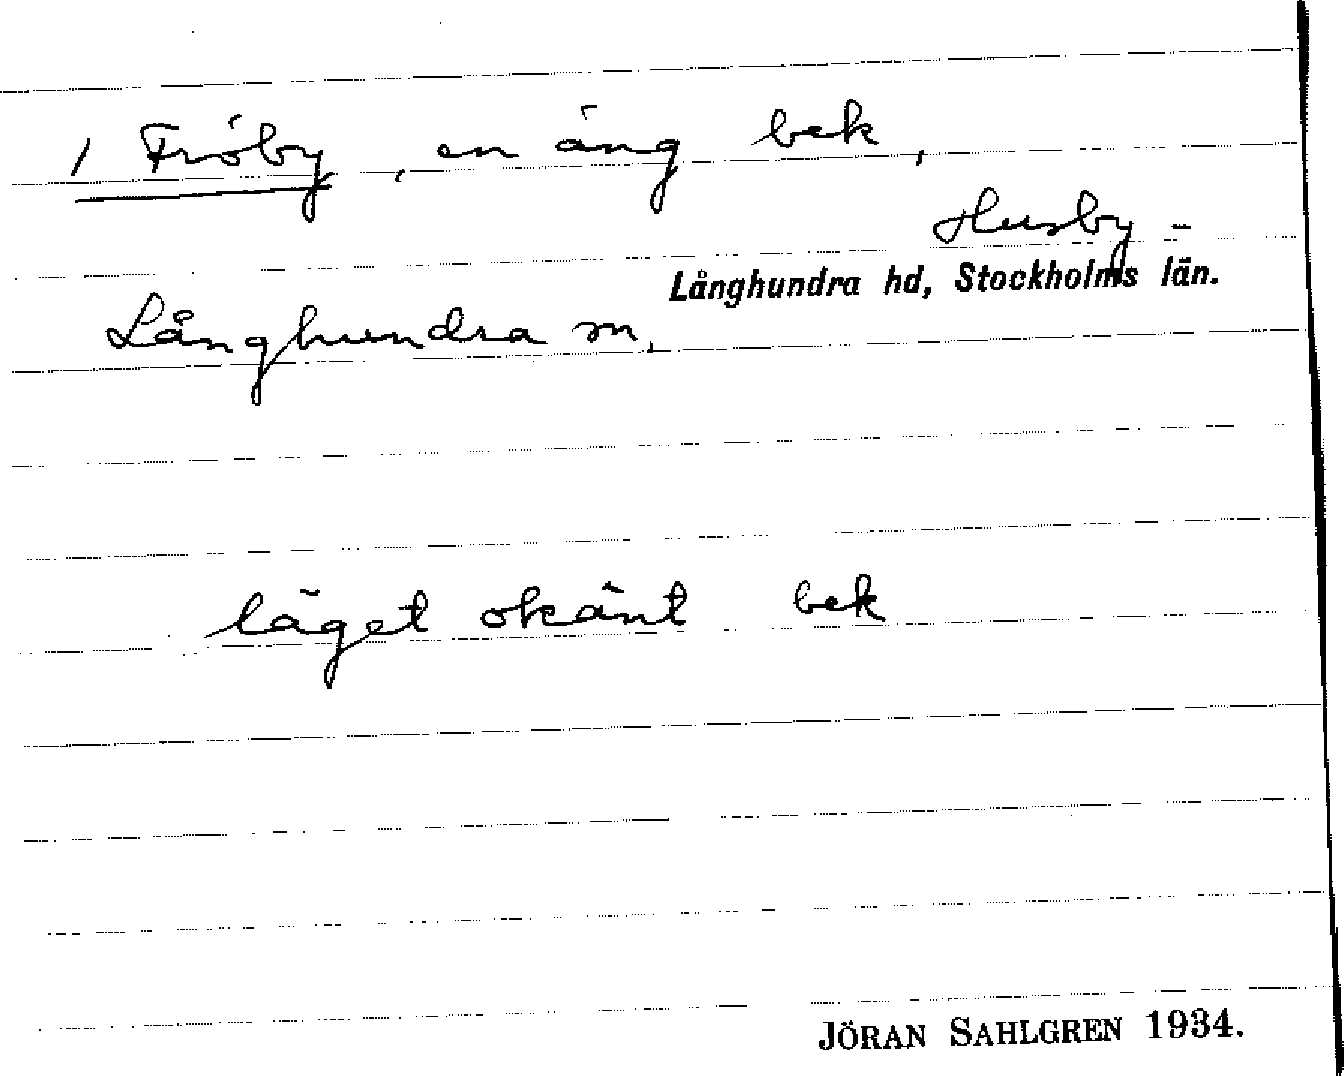 / Fröby, en äng bek,
Husby-
Långhundra hd, Stockholms län.
Långhundra sn.
läget okänt bek
JÖRAN SAHLGREN 1934.